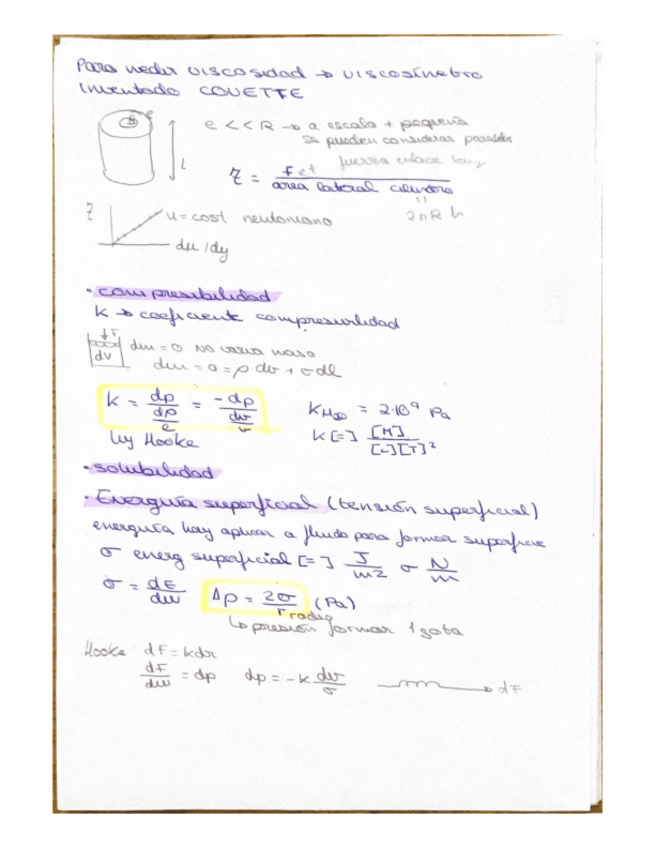 Para medir viscosidad → viscosímetro
inventado COUETTE
e
L
e << R → a escala + pequeña
se pueden considerar paralelas
fuerza
τ = Fet / área lateral cilindro
2πR·h
τ
μ = cost newtoniano
du/dy
• compresibilidad
K → coeficiente compresibilidad
↓F
dV
dm = 0 No varía masa
dm = 0 = ρ dv + v dρ
K = dp / (dρ/ρ) = -dp / (dv/v)
K H₂O = 2·10⁹ Pa
K [=] [M] / [L][T]²
ley Hooke
• solubilidad
• Energía superficial (tensión superficial)
energía hay aplicar a fluido para formar superficie
σ energ superficial [=] J/m2 o N/m
σ = dE/dw
Δp = 2σ/r (Pa)
radio
↳ presión formar 1 gota
Hooke dF = kdx
dF/dw = dp
dp = -K dv/v
→ dF